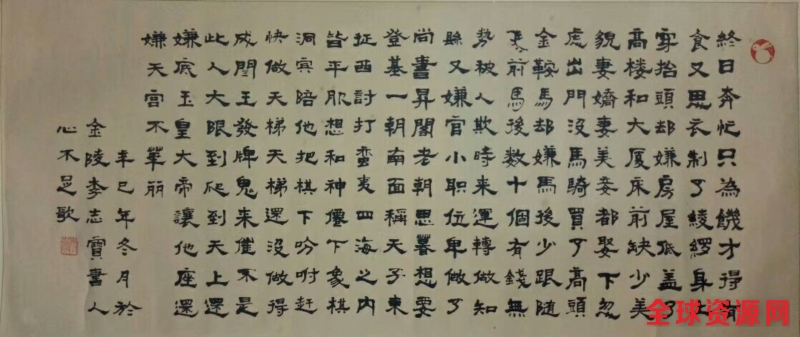 終日奔忙只為饑才得有
食又思衣制了綾綢身上
穿抬頭却嫌房屋低盖了
高楼和大厦床前缺少美
貌妻嬌妻美妾都娶下忽
慮出門没馬騎買了高頭
金鞍馬却嫌馬後少跟随
前馬後数十個有錢無
勢被人欺時来運轉做知
縣又嫌官小職位卑做了
尚書昇閣老朝思暮想要
登基一朝南面稱天子東
征西討打蛮夷四海之内
皆平服想和神僊下象棋
洞宾陪他把棋下吟咐赶
快做天梯天梯還没做得
成閻王發牌鬼来催不是
此人大限到爬到天上還
嫌底玉皇大帝讓他座還
嫌天宫不華丽
辛巳年冬月於
金陵李志寶書人
心不足歌
全球资源网